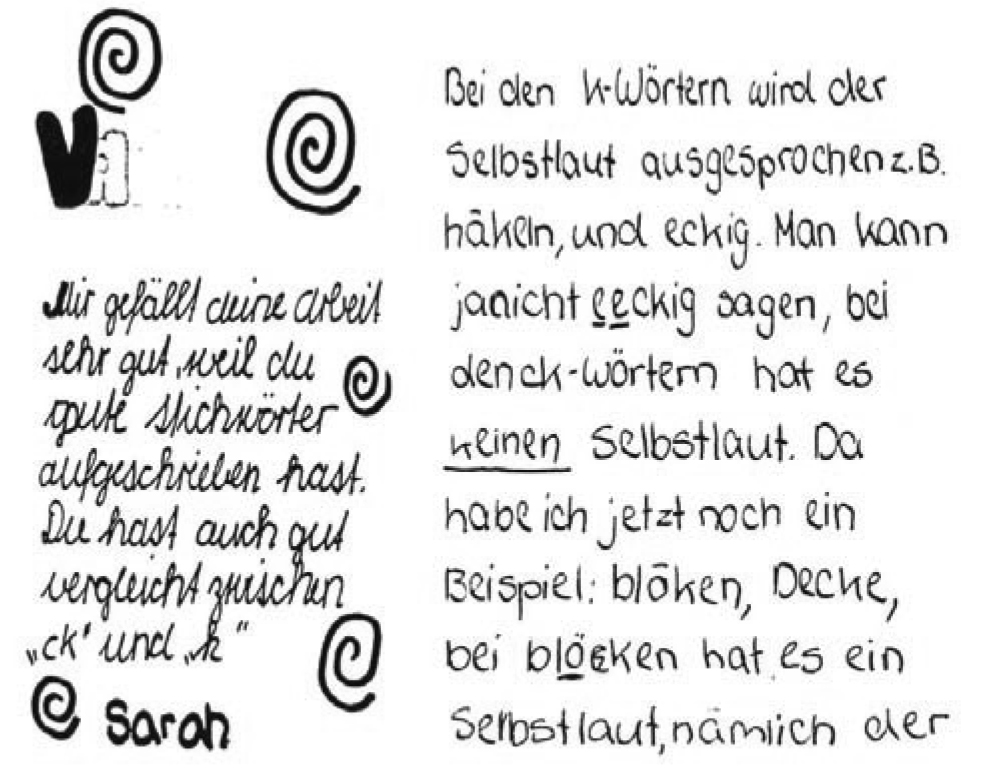 Mir gefällt deine Arbeit
sehr gut, weil du
gute Stichwörter
aufgeschrieben hast.
Du hast auch gut
vergleicht zwischen
„ck" und „k"
Sarah
Bei den k-Wörtern wird der
Selbstlaut ausgesprochen z.B.
häkeln, und eckig. Man kann
ja nicht eeckig sagen, bei
den ck-Wörtern hat es
keinen Selbstlaut. Da
habe ich jetzt noch ein
Beispiel: blöken, Decke,
bei blöken hat es ein
Selbstlaut, nämlich der